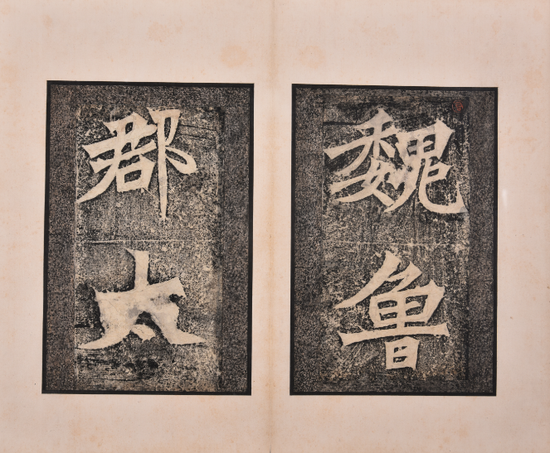 魏魯
郡太